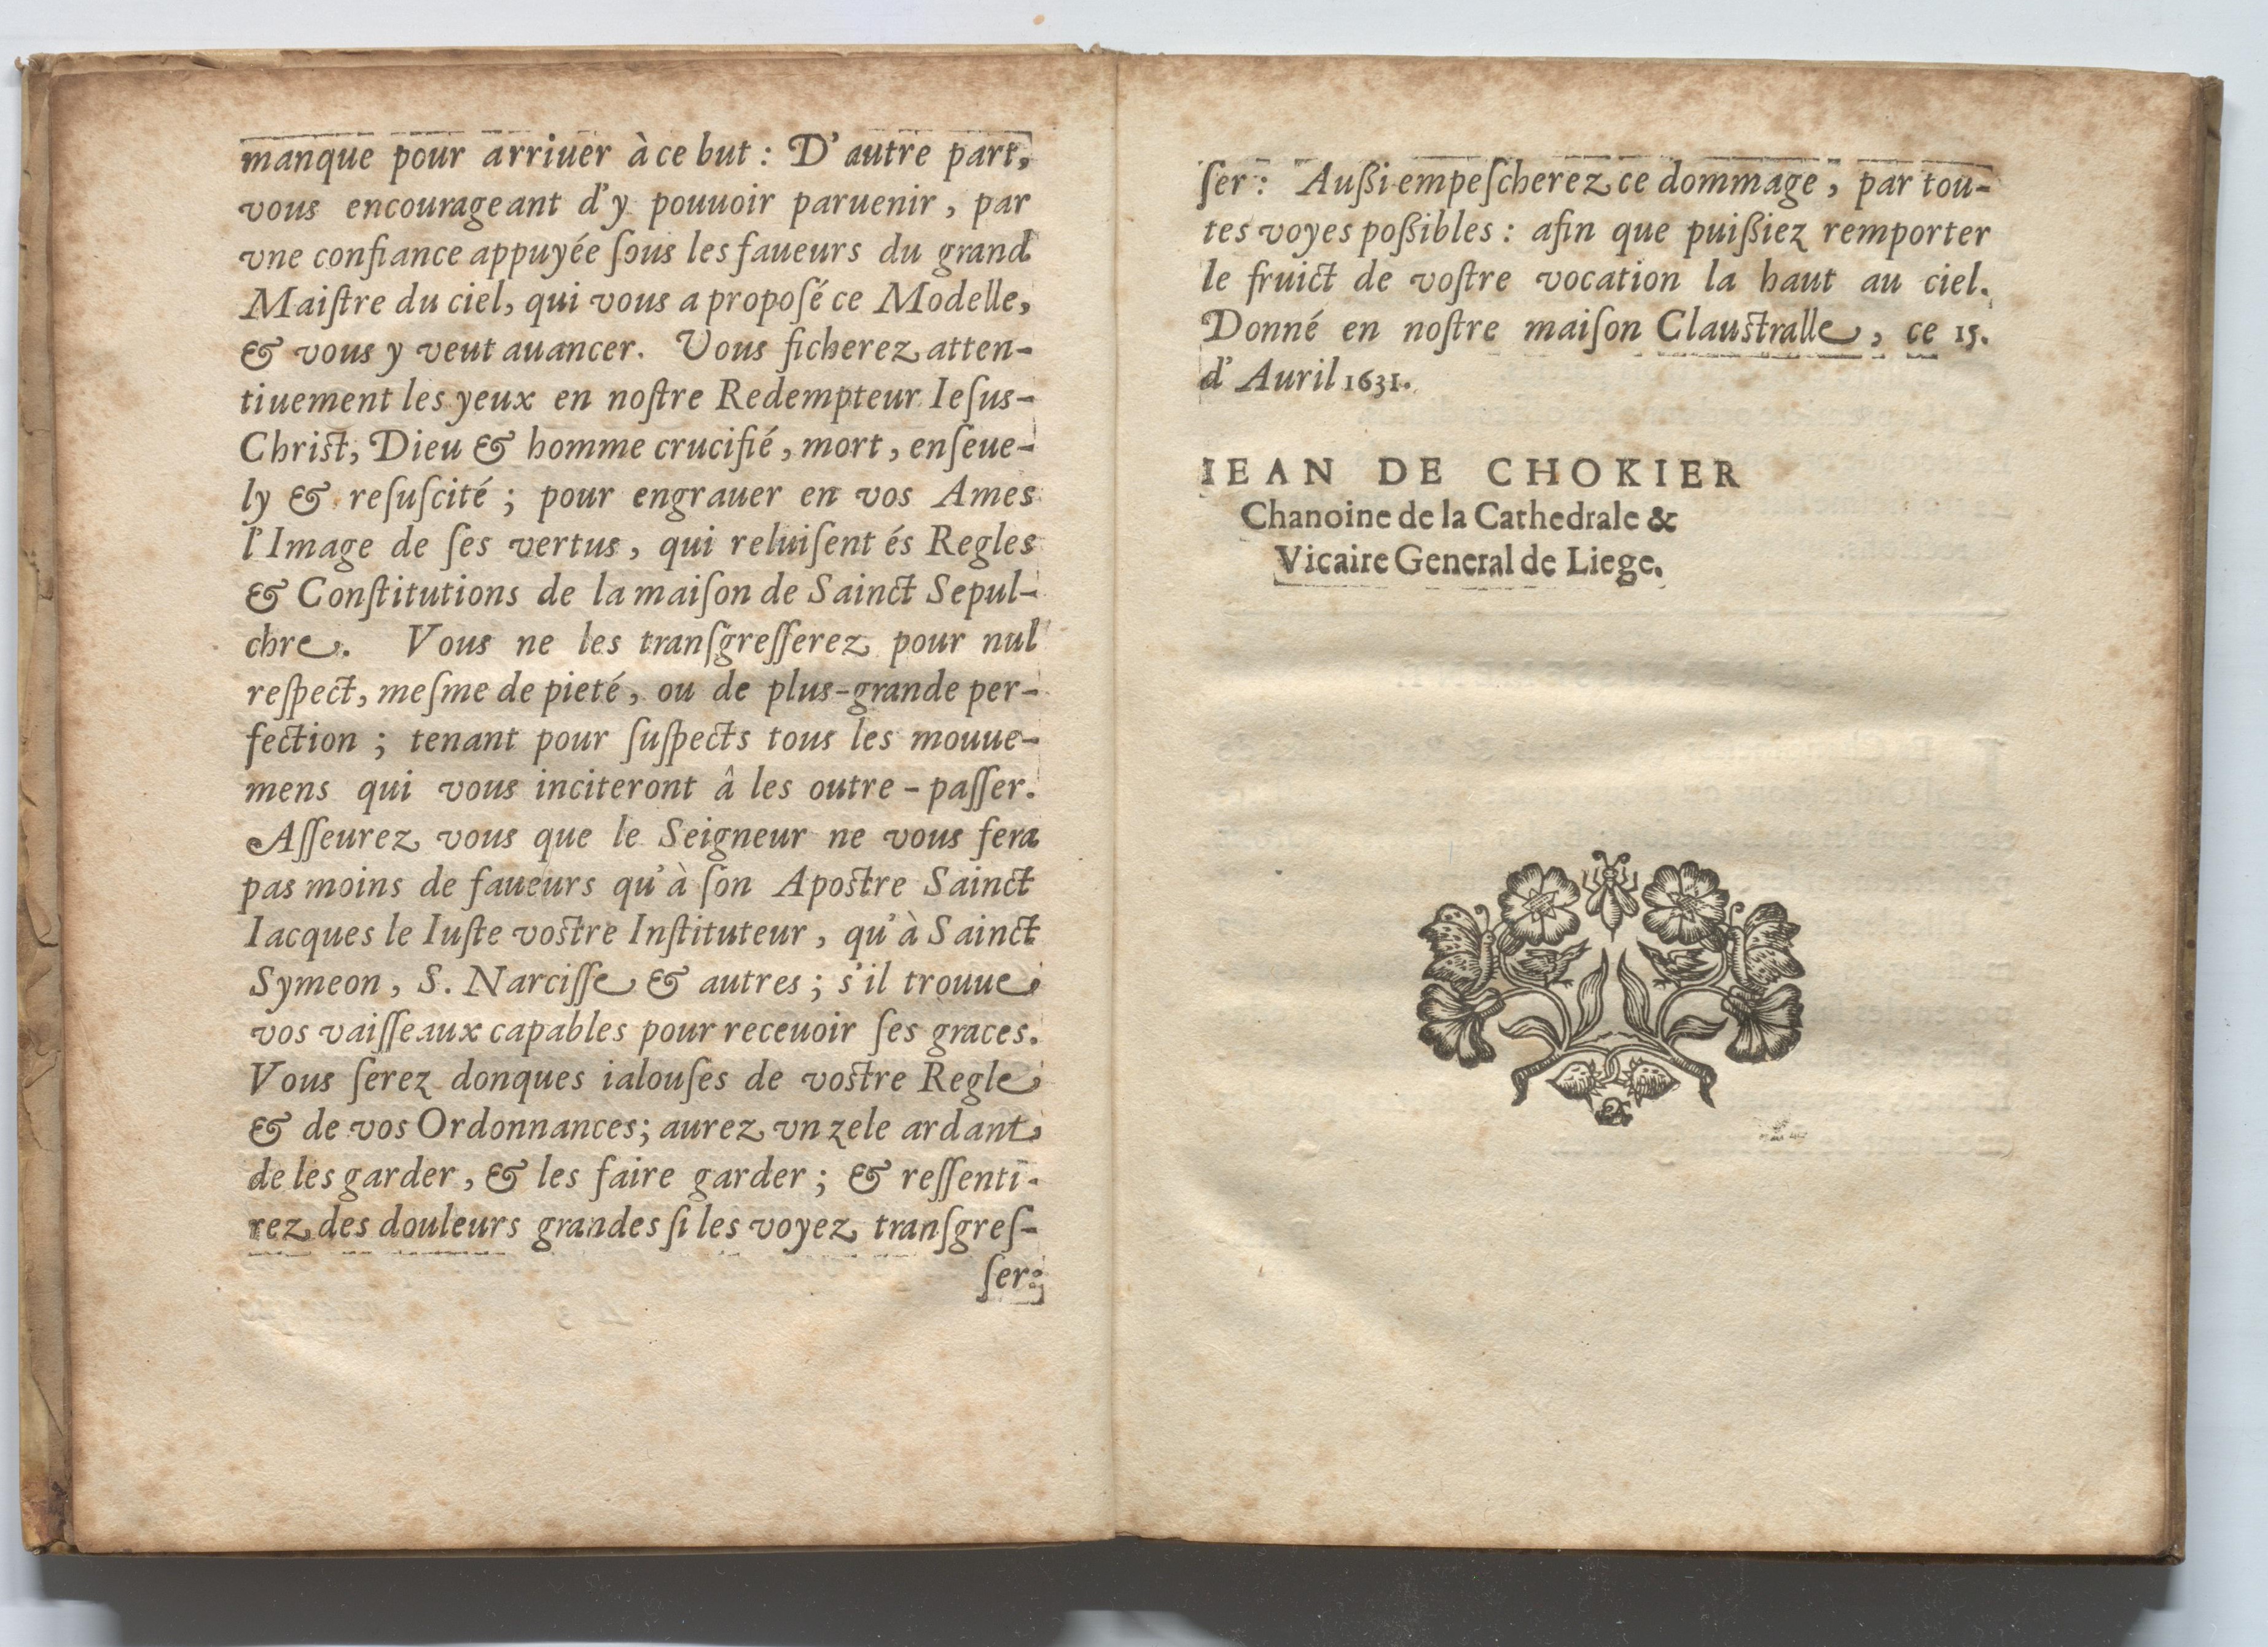 manque pour arriuer à ce but : D'autre part,
vous encourageant d'y pouuoir paruenir, par
vne confiance appuyée ſous les faueurs du grand
Maiſtre du ciel, qui vous a propoſé ce Modelle,
& vous y veut auancer. Vous ficherez atten-
tiuement les yeux en noſtre Redempteur Ieſus-
Chriſt, Dieu & homme crucifié, mort, enſeue-
ly & reſuſcité ; pour engrauer en vos Ames
l'Image de ſes vertus, qui reluiſent és Regles
& Conſtitutions de la maiſon de Sainct Sepul-
chre. Vous ne les tranſgreſſerez pour nul
reſpect, meſme de pieté, ou de plus-grande per-
fection ; tenant pour ſuſpects tous les mouue-
mens qui vous inciteront â les outre-paſſer.
Aſſeurez vous que le Seigneur ne vous fera
pas moins de faueurs qu'à ſon Apoſtre Sainct
Iacques le Iuſte voſtre Inſtituteur, qu'à Sainct
Symeon, S. Narciſſe & autres ; s'il trouue
vos vaiſſeaux capables pour receuoir ſes graces.
Vous ſerez donques ialouſes de voſtre Regle
& de vos Ordonnances; aurez vn zele ardant
de les garder, & les faire garder ; & reſſenti-
rez des douleurs grandes ſi les voyez tranſgreſ-
ſer:
ſer: Außi empeſcherez ce dommage, par tou-
tes voyes poßibles : afin que puißiez remporter
le fruict de voſtre vocation la haut au ciel.
Donné en noſtre maiſon Clauſtralle, ce 15.
d'Auril 1631.
IEAN DE CHOKIER
Chanoine de la Cathedrale &
Vicaire General de Liege.